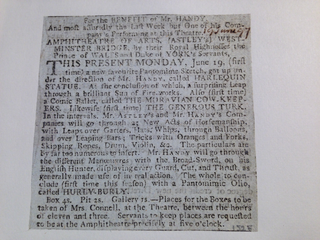 For the BENEFIT of Mr. HANDY.
And most assuredly the Last Week but One of his Com-
pany's Performing at this Theatre.
AMPHITHEATRE OF ARTS, [ASTLEY's] WEST-
MINSTER BRIDGE, by their Royal Highnesses the
Prince of WALES and Duke of YORK's Servants.
THIS PRESENT MONDAY, June 19, (first
time) a new favourite Pantomime Sketch, got up un-
der the direction of Mr. HANDY, called HARLEQUIN
STATUE. At the conclusion of which, a surprising Leap
through a brilliant Sun of Fire-works. Also (first time)
a Comic Ballet, called THE MORAVIAN COW-KEEP-
ERS. Likewise (first time) THE GENEROUS TURK.
In the intervals, Mr. ASTLEY's and Mr. HANDY's Com-
panies will go through as New Acts of Horsemanship,
with Leaps over Garters, Hats, Whips, through Balloons,
and over Leaping Bars; Tricks with Oranges and Forks,
Skipping Ropes, Drum, Violin, &c. The particulars are
by far too numerous to insert. Mr. HANDY will go through
the different Manœuvres with the Broad-Sword, on his
English Hunter, displaying every Guard, Cut, and Thrust, as
generally made use of in real action. The whole to con-
clude (first time this season) with a Pantomimic Olio,
called HURLY-BURLY.
Box 4s. Pit 2s. Gallery 1s.—Places for the Boxes to be
taken of Mrs. Connell, at the Theatre, between the hours
of eleven and three. Servants to keep places are requested
to be at the Amphitheatre precisely at five o'clock.